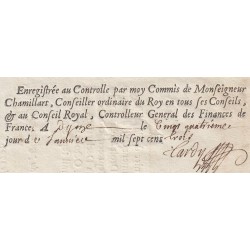 Enregistrée au Controlle par moy Commis de Monseigneur
Chamillart, Conseiller ordinaire du Roy en tous ses Conseils,
& au Conseil Royal, Controlleur General des Finances de
France. A le quatrième
jour de Janvier mil sept cens trois
Hardy